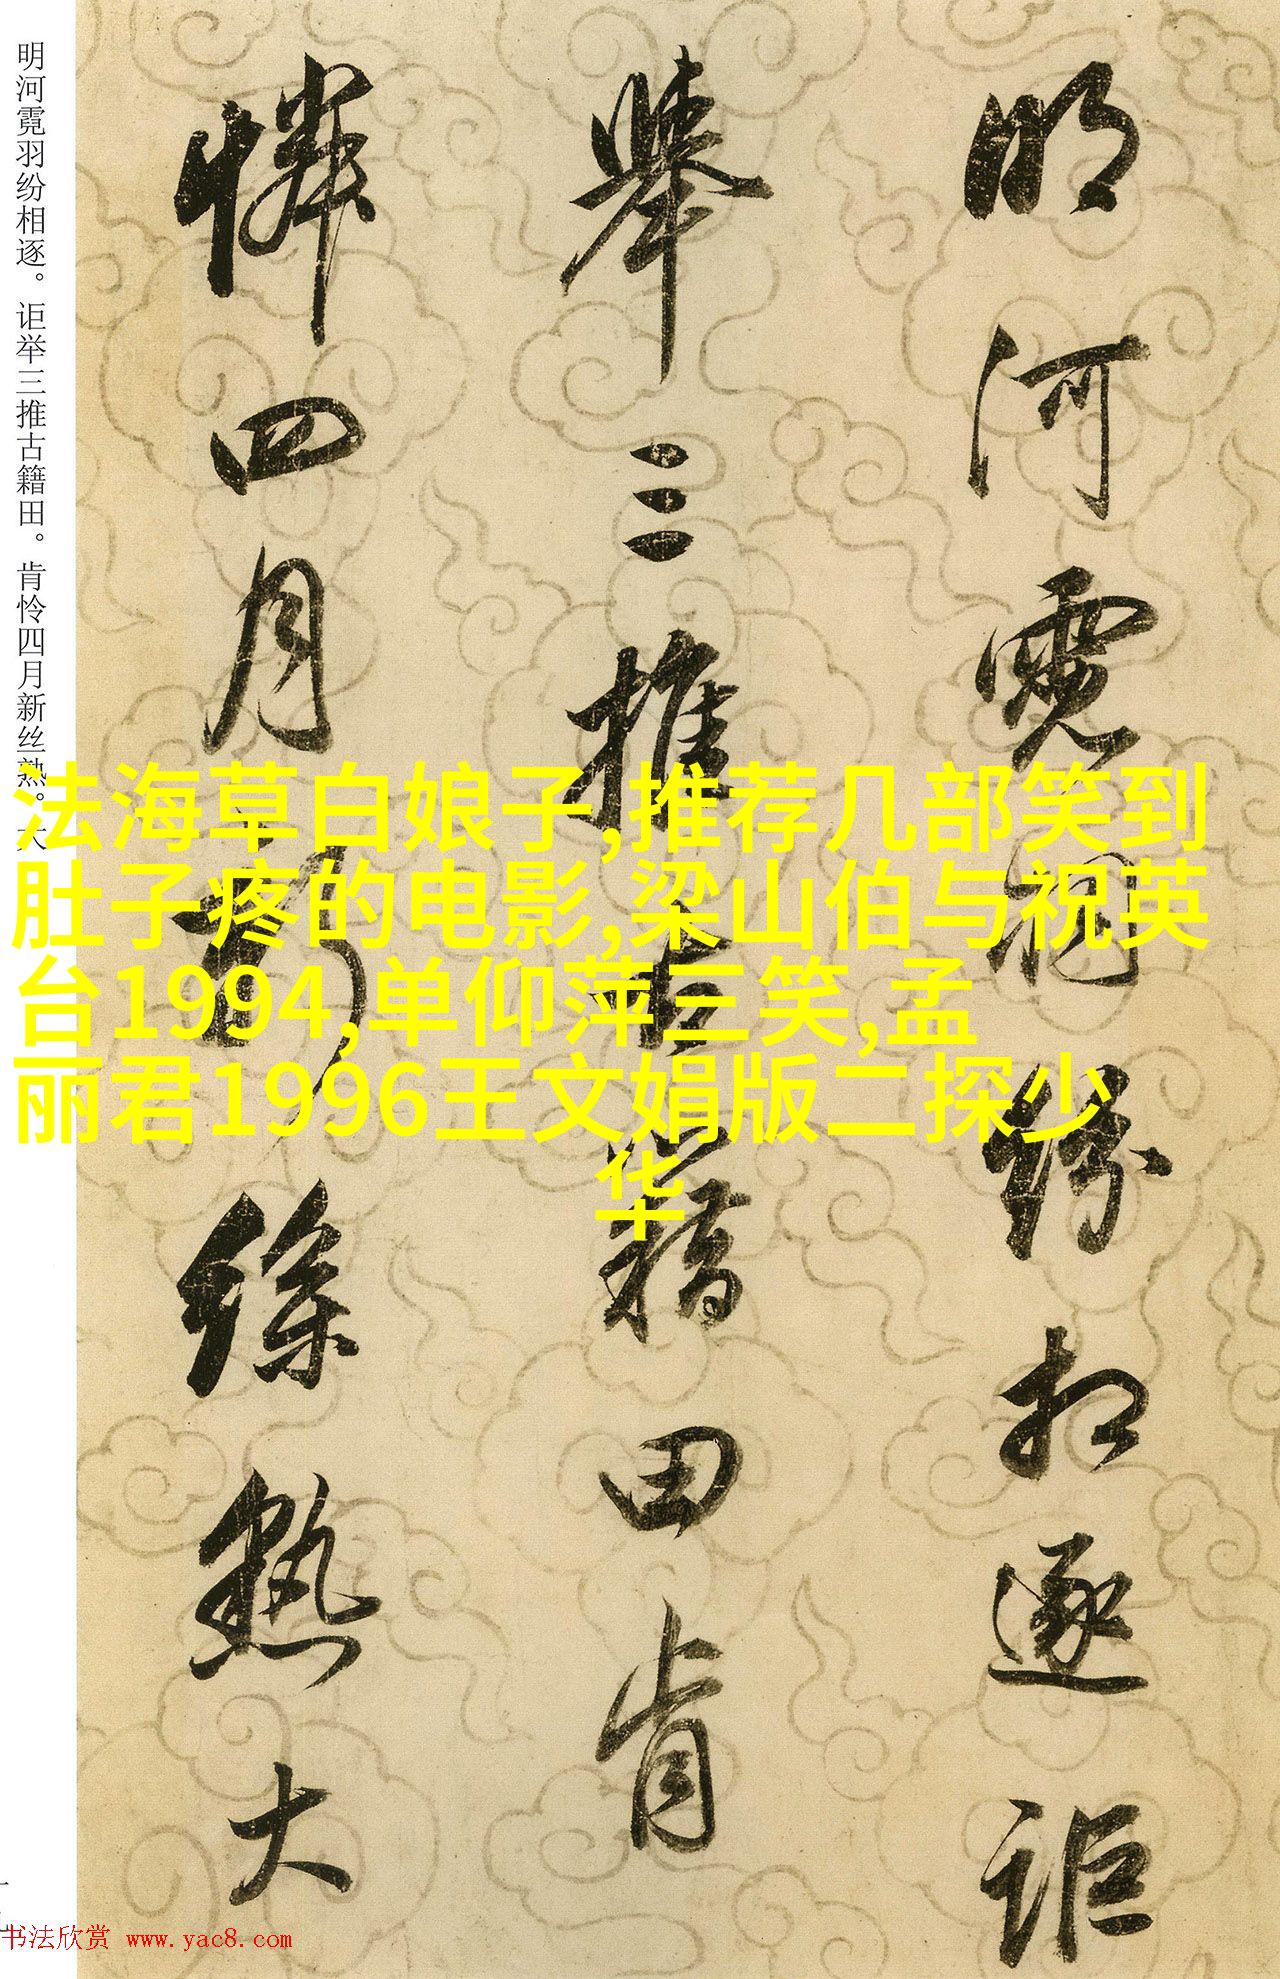 明河霓羽纷相逐。讵举三推古籍田。肯怜四月新丝熟。大
明河霓羽纷相逐讵
舉三推古籍田肯
憐四月新絲熟大
法海草白娘子,推荐几部笑到
肚子疼的电影,梁山伯与祝英
台1994,单仰萍三笑,孟
丽君1996王文娟版二探少
华
书法欣赏 www.yac8.com